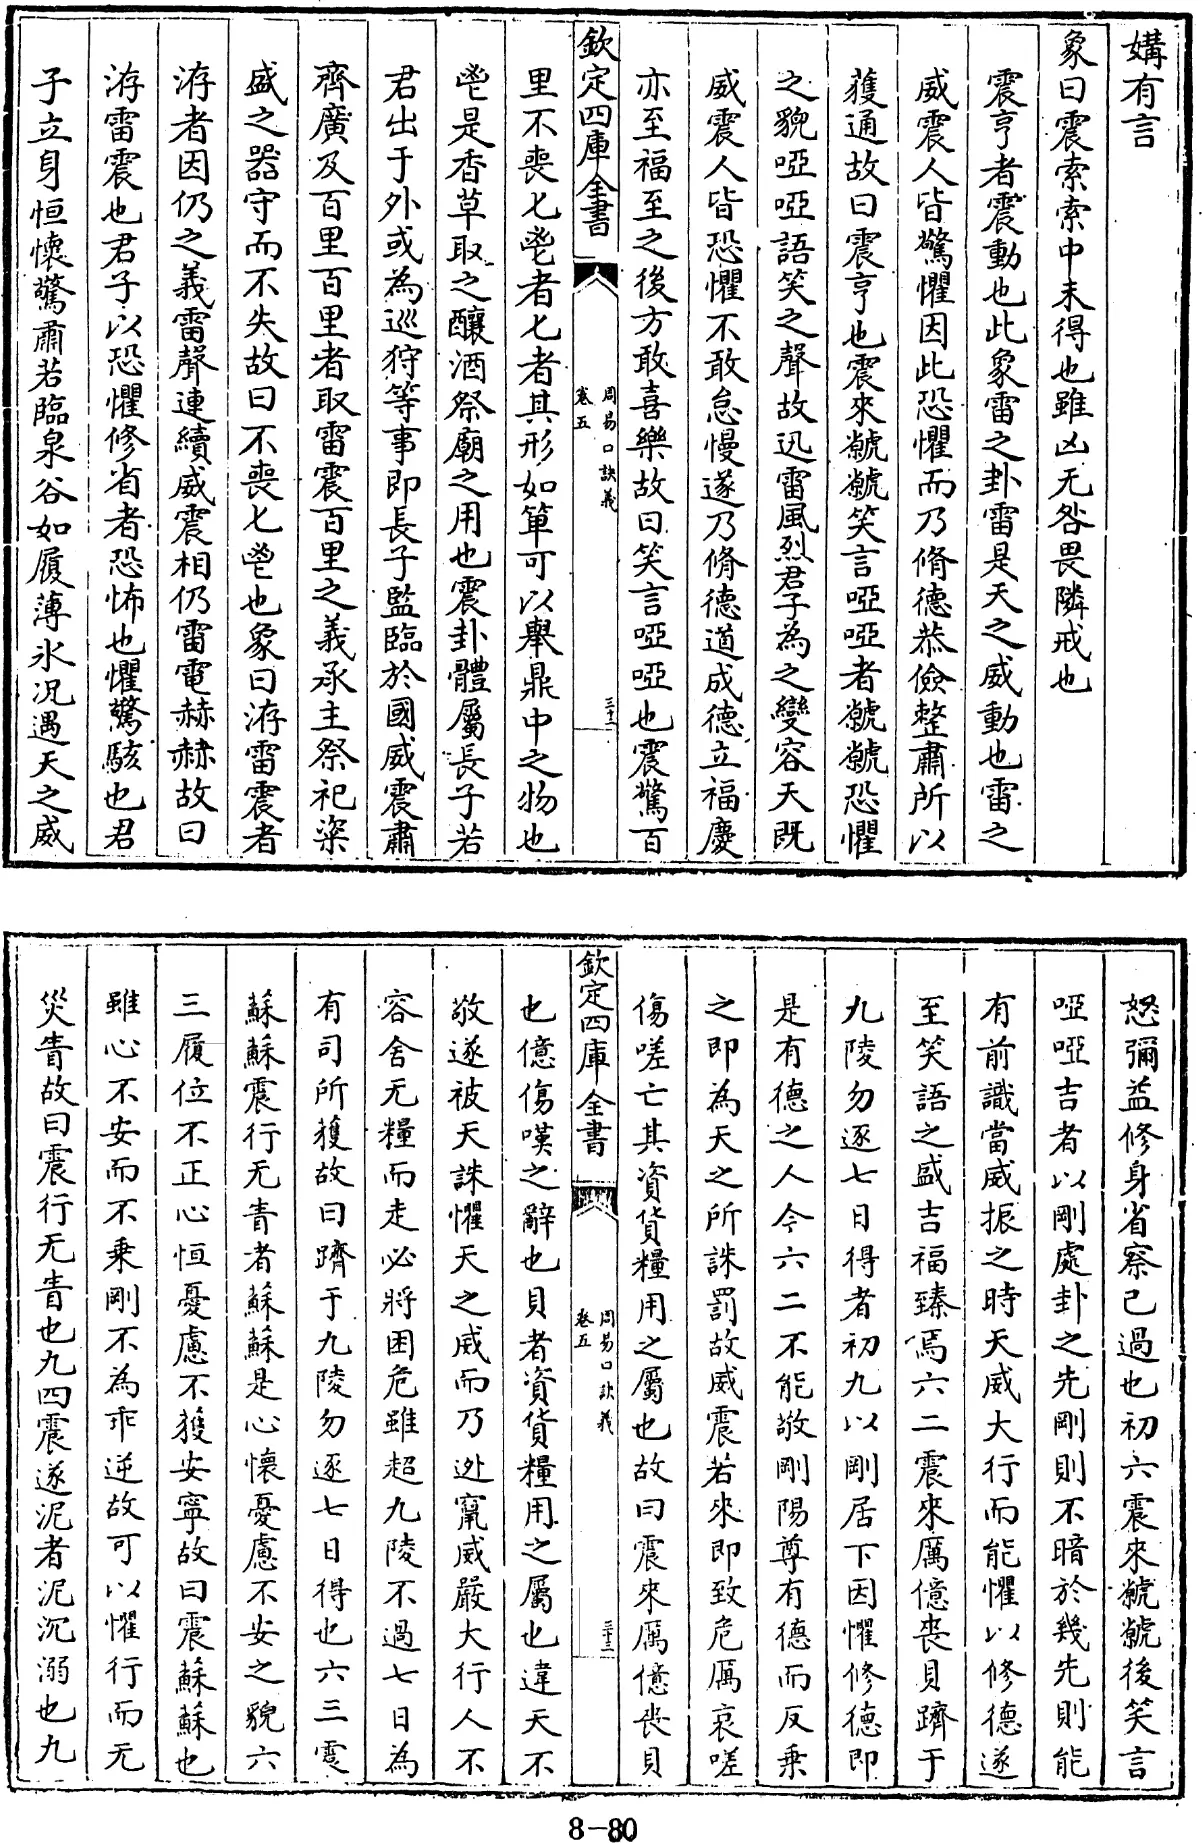 媾有言
象曰震索索中未得也雖凶无咎畏隣戒也
震亨者震動也此象雷之卦雷是天之威動也雷之
威震人皆驚懼因此恐懼而乃脩德恭儉整肅所以
獲通故曰震亨也震來虩虩笑言啞啞者虩虩恐懼
之貌啞啞語笑之聲故迅雷風烈君子為之變容天既
威震人皆恐懼不敢怠慢遂乃脩德道成德立福慶
亦至福至之後方敢喜樂故曰笑言啞啞也震驚百
欽定四庫全書
周易口訣義
卷五
三十二
里不喪匕鬯者匕者其形如箄可以舉鼎中之物也
鬯是香草取之釀酒祭廟之用也震卦體屬長子若
君出于外或為巡狩等事即長子監臨於國威震肅
齊廣及百里百里者取雷震百里之義承主祭祀粢
盛之器守而不失故曰不喪匕鬯也象曰洊雷震者
洊者因仍之義雷聲連續威震相仍雷電赫赫故曰
洊雷震也君子以恐懼修省者恐怖也懼驚駭也君
子立身恒懷驚肅若臨泉谷如履薄氷况遇天之威
怒彌益修身省察己過也初六震來虩虩後笑言
啞啞吉者以剛處卦之先剛則不暗於幾先則能
有前識當威振之時天威大行而能懼以修德遂
至笑語之盛吉福臻焉六二震來厲億喪貝躋于
九陵勿逐七日得者初九以剛居下因懼修德即
是有德之人今六二不能敬剛陽尊有德而反乗
之即為天之所誅罰故威震若來即致危厲哀嗟
傷嗟亡其資貨糧用之屬也故曰震來厲億喪貝
欽定四庫全書
周易口訣義
卷五
三十三
也億傷嘆之辭也貝者資貨糧用之屬也違天不
敬遂被天誅懼天之威而乃迯竄威嚴大行人不
容舍无糧而走必將困危雖超九陵不過七日為
有司所獲故曰躋于九陵勿逐七日得也六三震
蘇蘇震行无眚者蘇蘇是心懷憂慮不安之貌六
三履位不正心恒憂慮不獲安寧故曰震蘇蘇也
雖心不安而不乗剛不為乖逆故可以懼行而无
災眚故曰震行无眚也九四震遂泥者泥沉溺也九
8-80